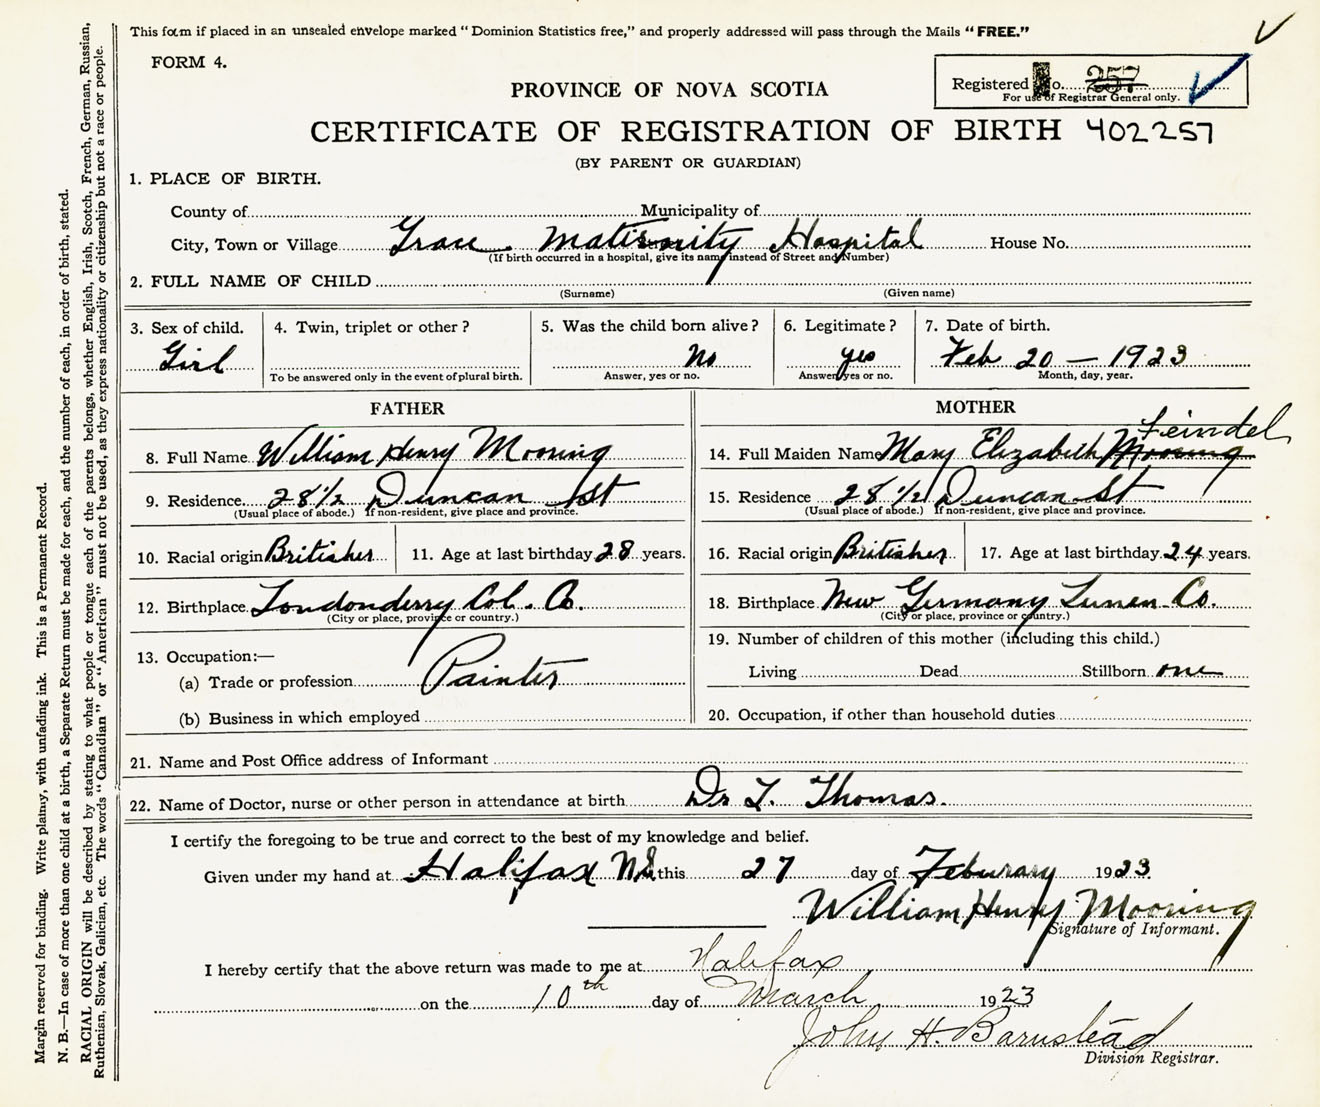 This form if placed in an unsealed envelope marked "Dominion Statistics free," and properly addressed will pass through the Mails "FREE."
FORM 4.
Registered No. 257
For use of Registrar General only.
PROVINCE OF NOVA SCOTIA
CERTIFICATE OF REGISTRATION OF BIRTH 402257
(BY PARENT OR GUARDIAN)
1. PLACE OF BIRTH.
County of Municipality of
City, Town or Village Grace Maternity Hospital House No.
(If birth occurred in a hospital, give its name instead of Street and Number)
2. FULL NAME OF CHILD
(Surname) (Given name)
3. Sex of child. 4. Twin, triplet or other? 5. Was the child born alive? 6. Legitimate? 7. Date of birth.
Girl No yes Feb 20 — 1923
To be answered only in the event of plural birth. Answer, yes or no. Answer, yes or no. Month, day, year.
FATHER
8. Full Name William Henry Mooring
9. Residence 28 1/2 Duncan St
(Usual place of abode.) If non-resident, give place and province.
10. Racial origin Britisher 11. Age at last birthday 28 years.
12. Birthplace Londonderry Col. Co.
(City or place, province or country.)
13. Occupation:—
(a) Trade or profession Painter
(b) Business in which employed
MOTHER
Feindel
14. Full Maiden Name Mary Elizabeth Mooring
15. Residence 28 1/2 Duncan St
(Usual place of abode.) If non-resident, give place and province.
16. Racial origin Britisher 17. Age at last birthday 24 years.
18. Birthplace New Germany Lunen Co.
(City or place, province or country.)
19. Number of children of this mother (including this child.)
Living Dead Stillborn one
20. Occupation, if other than household duties
21. Name and Post Office address of Informant
22. Name of Doctor, nurse or other person in attendance at birth Dr T. Thomas.
I certify the foregoing to be true and correct to the best of my knowledge and belief.
Given under my hand at Halifax N.S. this 27 day of Feburary 1923
William Henry Mooring
Signature of Informant.
I hereby certify that the above return was made to me at Halifax
on the 10th day of March 1923
John H. Barnstead
Division Registrar.
Margin reserved for binding. Write plainly, with unfading ink. This is a Permanent Record.
N. B.—In case of more than one child at a birth, a Separate Return must be made for each, and the number of each, in order of birth, stated.
RACIAL ORIGIN will be described by stating to what people or tongue each of the parents belongs, whether English, Irish, Scotch, French, German, Russian,
Ruthenian, Slovak, Galician, etc. The words "Canadian" or "American" must not be used, as they express nationality or citizenship but not a race or people.